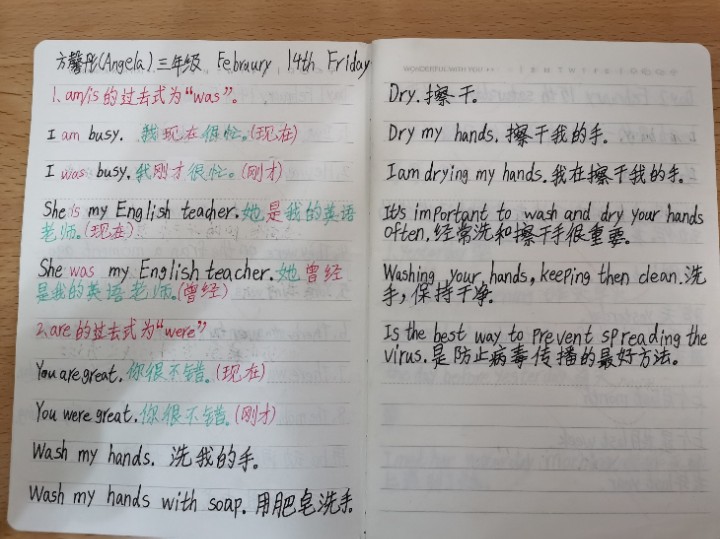 方馨彤(Angela) 三年级 Febraury 14th Friday
1. am/is的过去式为"was"。
I am busy. 我现在很忙。(现在)
I was busy. 我刚才很忙。(刚才)
She is my English teacher. 她是我的英语
老师。(现在)
She was my English teacher. 她曾经
是我的英语老师。(曾经)
2. are的过去式为"were"
You are great. 你很不错。(现在)
You were great. 你很不错。(刚才)
Wash my hands. 洗我的手。
Wash my hands with soap. 用肥皂洗手。
WONDERFUL WITH YOU
Dry. 擦干。
Dry my hands. 擦干我的手。
I am drying my hands. 我在擦干我的手。
It's important to wash and dry your hands
often. 经常洗和擦干手很重要。
Washing your hands, keeping then clean. 洗
手,保持干净。
Is the best way to prevent spreading the
virus. 是防止病毒传播的最好方法。